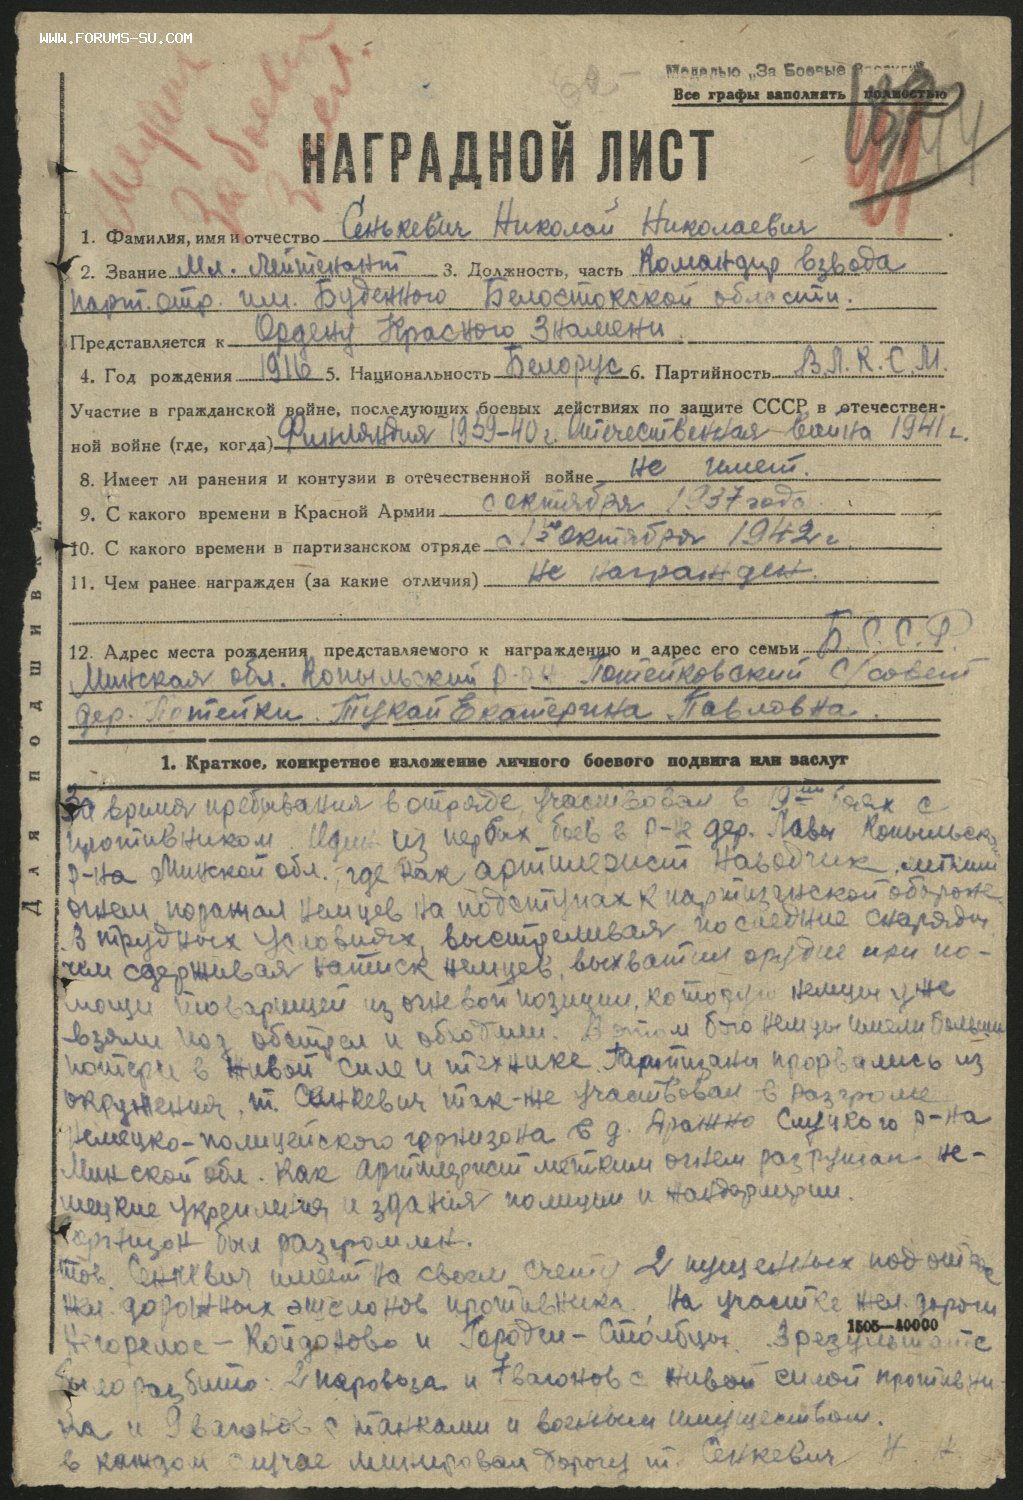 WWW.FORUMS-SU.COM
Медаль
За боевые
Медалью „За Боевые Заслуги"
Все графы заполнять полностью
НАГРАДНОЙ ЛИСТ
1. Фамилия, имя и отчество Сенькевич Николай Николаевич
2. Звание Мл. Лейтенант 3. Должность, часть Командир взвода
парт. отр. им. Буденного Белостокской области.
Представляется к Ордену Красного Знамени.
4. Год рождения 1916 5. Национальность Белорус 6. Партийность В.Л.К.С.М.
Участие в гражданской войне, последующих боевых действиях по защите СССР в отечествен-
ной войне (где, когда) Финляндия 1939-40 г. Отечественная война 1941 г.
8. Имеет ли ранения и контузии в отечественной войне не имеет.
9. С какого времени в Красной Армии с октября 1937 года
10. С какого времени в партизанском отряде с 15го октября 1942 г.
11. Чем ранее награжден (за какие отличия) не награжден.
12. Адрес места рождения представляемого к награждению и адрес его семьи Б.С.С.Р.
Минская обл. Копыльский р-он Потейковский С/совет
дер. Потейки. Тукай Екатерина Павловна.
Для подшивки
1. Краткое, конкретное изложение личного боевого подвига или заслуг
За время пребывания в отряде, участвовал в 19-ти боях с
противником. Один из первых боев в р-не дер. Лавы Копыльско
р-на Минской обл., где как артиллерист наводчик метким
огнем поражал немцев на подступах к партизанской обороне
В трудных условиях, выстреливая последние снаряды,
чем сдерживая натиск немцев, выхватил орудие при по-
мощи товарищей из огневой позиции, которую немцы уже
взяли под обстрел и обходили. В этом бою немцы имели большие
потери в живой силе и технике. Партизаны прорвались из
окружения. т. Сенкевич так-же участвовал в разгроме
немецко-полицейского гарнизона в д. Дражно Слуцкого р-на
Минской обл. Как артиллерист метким огнем разрушал не-
мецкие укрепления и здания полиции и жандармерии.
Гарнизон был разгромлен.
тов. Сенкевич имеет на своем счету 2 пущенных под откос
жел. дорожных эшелонов противника. На участке жел. дороги
Негорелое - Койданово и Городея - Столбцы. В результате
1505—40000
было разбито: 2 паровоза и 7 вагонов с живой силой противни-
ка и 9 вагонов с танками и военным имуществом.
в каждом случае минировал дорогу т. Сенкевич Н. Н.